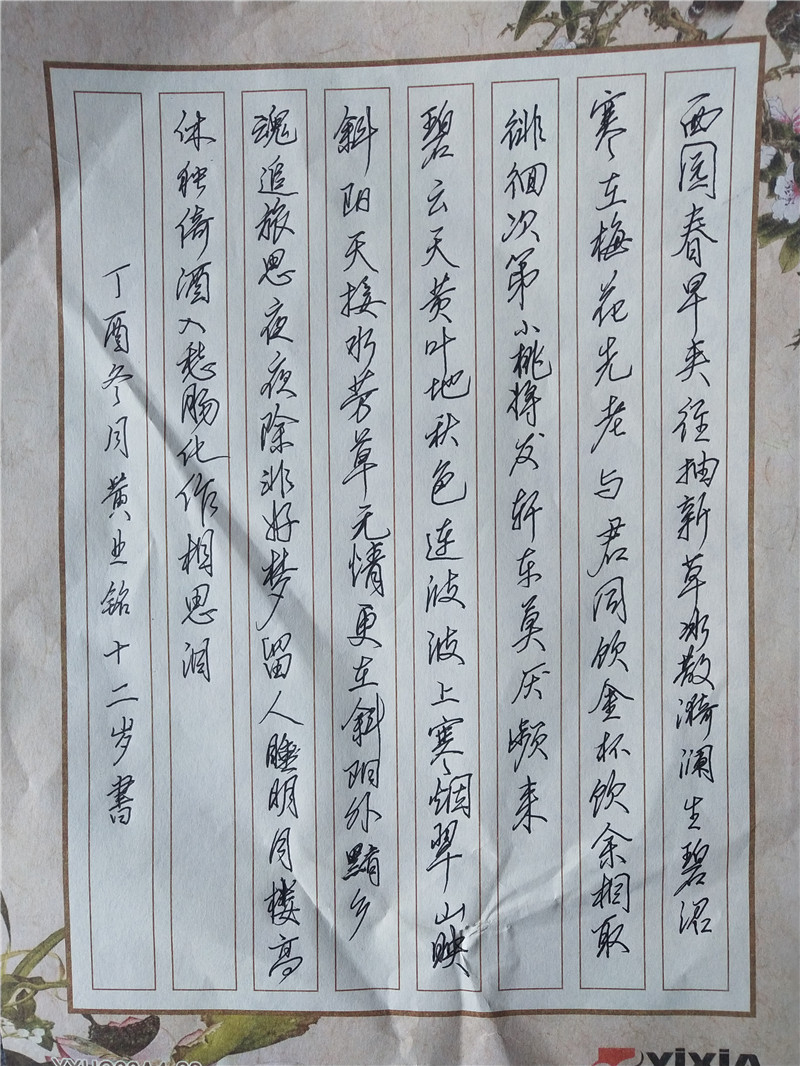 西园春早夹径抽新草冰散漪澜生碧沼
寒在梅花先老与君同饮金杯饮余相取
徘徊次第小桃将发轩车莫厌频来
碧云天黄叶地秋色连波波上寒烟翠山映
斜阳天接水芳草无情更在斜阳外黯乡
魂追旅思夜夜除非好梦留人睡明月楼高
休独倚酒入愁肠化作相思泪
丁酉冬月黄业铭十二岁书
YIXIN